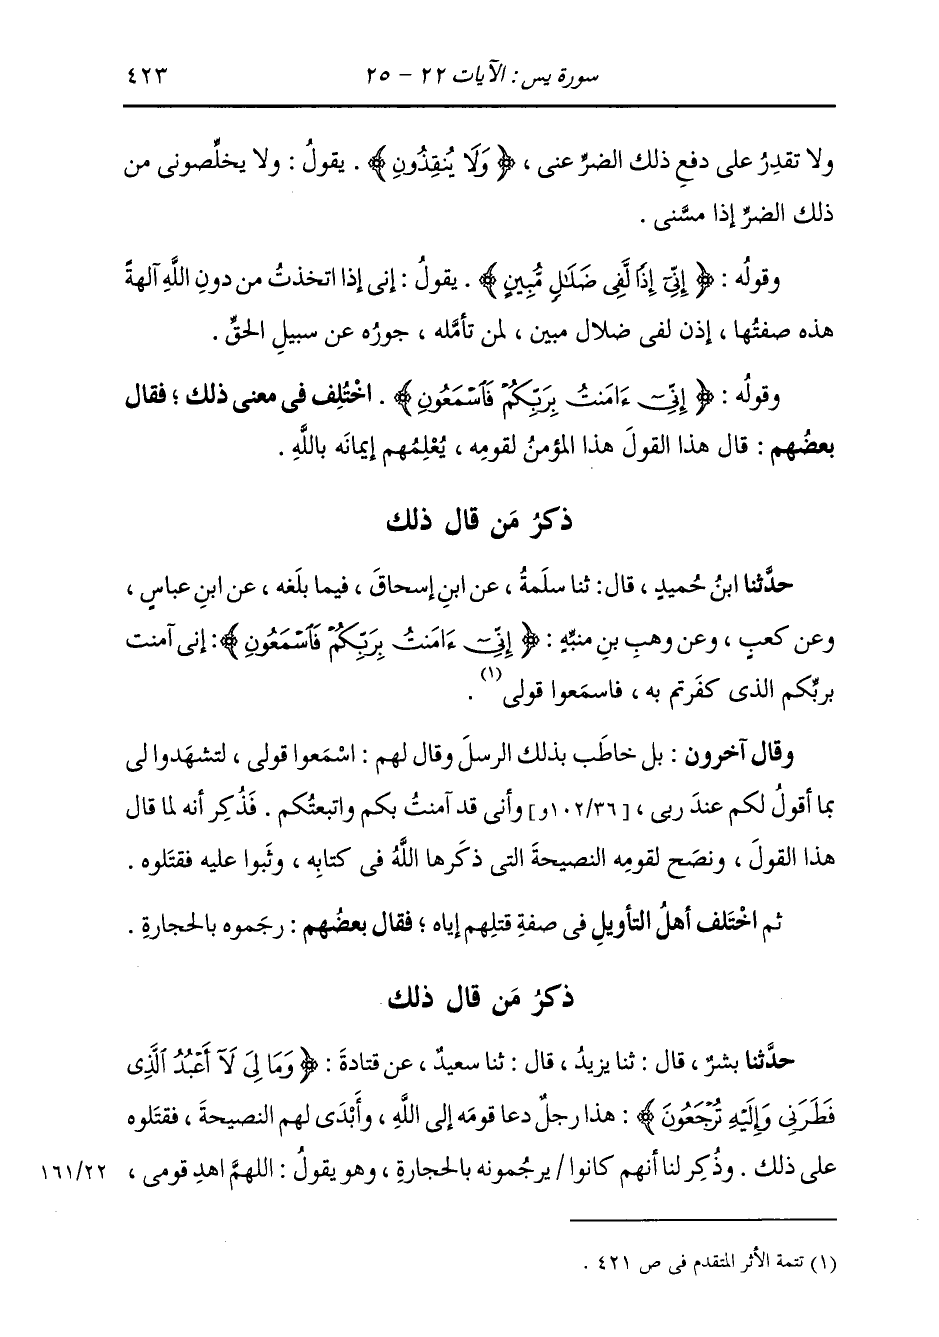 سورة يس : الآيات ٢٢ - ٢٥ ٤٢٣
ولا تقدِرُ على دفعِ ذلك الضرِّ عنى ، ﴿ وَلَا يُنقِذُونِ ﴾ . يقولُ : ولا يخلِّصونى من
ذلك الضرِّ إذا مسَّنى .
وقولُه : ﴿ إِنِّىٓ إِذًا لَّفِى ضَلَٰلٍ مُّبِينٍ ﴾ . يقولُ : إنى إذا اتخذتُ من دونِ اللَّهِ آلهةً
هذه صفتُها ، إذن لفى ضلال مبين ، لمن تأمَّله ، جورُه عن سبيلِ الحقِّ .
وقولُه : ﴿ إِنِّىٓ ءَامَنتُ بِرَبِّكُمْ فَٱسْمَعُونِ ﴾ . اخْتُلِف فى معنى ذلك ؛ فقال
بعضُهم : قال هذا القولَ هذا المؤمنُ لقومِه ، يُعْلِمُهم إيمانَه باللَّهِ .
ذكرُ مَن قال ذلك
حدَّثنا ابنُ حُميدٍ ، قال : ثنا سلَمةُ ، عن ابنِ إسحاقَ ، فيما بلَغه ، عن ابنِ عباسٍ ،
وعن كعبٍ ، وعن وهبِ بنِ منبِّهٍ : ﴿ إِنِّىٓ ءَامَنتُ بِرَبِّكُمْ فَٱسْمَعُونِ ﴾ : إنى آمنت
بربِّكم الذى كفَرتم به ، فاسمَعوا قولى(١) .
وقال آخرون : بل خاطَب بذلك الرسلَ وقال لهم : اسْمَعوا قولى ، لتشهَدوا لى
بما أقولُ لكم عندَ ربى ، [١٠٢/٣٦و] وأنى قد آمنتُ بكم واتبعتُكم . فَذُكِر أنه لما قال
هذا القولَ ، ونصَح لقومِه النصيحةَ التى ذكَرها اللَّهُ فى كتابِه ، وثَبوا عليه فقتَلوه .
ثم اخْتَلف أهلُ التأويلِ فى صفةِ قتلِهم إياه ؛ فقال بعضُهم : رجَموه بالحجارةِ .
ذكرُ مَن قال ذلك
حدَّثنا بشرٌ ، قال : ثنا يزيدُ ، قال : ثنا سعيدٌ ، عن قتادةَ : ﴿ وَمَا لِىَ لَآ أَعْبُدُ ٱلَّذِى
فَطَرَنِى وَإِلَيْهِ تُرْجَعُونَ ﴾ : هذا رجلٌ دعا قومَه إلى اللَّهِ ، وأَبْدَى لهم النصيحةَ ، فقتَلوه
على ذلك . وذُكِر لنا أنهم كانوا / يرجُمونه بالحجارةِ ، وهو يقولُ : اللهمَّ اهدِ قومى ، ١٦١/٢٢
(١) تتمة الأثر المتقدم فى ص ٤٢١ .